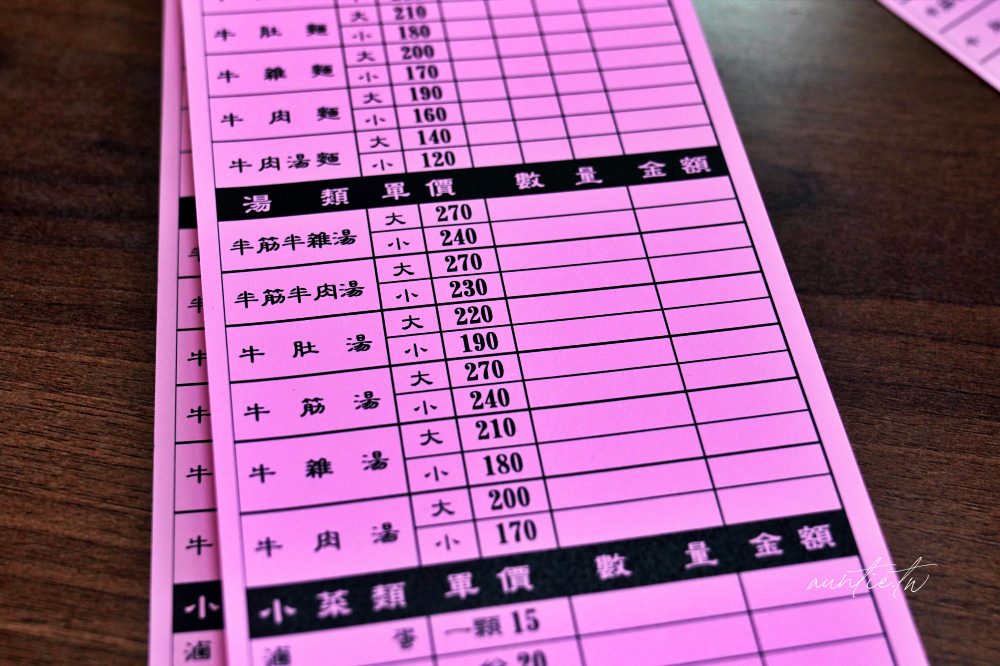 牛肚麵 大 210
小 180
牛雜麵 大 200
小 170
牛肉麵 大 190
小 160
牛肉湯麵 大 140
小 120
湯類 單價 數量 金額
半筋半雜湯 大 270
小 240
半筋半肉湯 大 270
小 230
牛肚湯 大 220
小 190
牛筋湯 大 270
小 240
牛雜湯 大 210
小 180
牛肉湯 大 200
小 170
小菜類 單價 數量 金額
滷蛋 一顆 15
20
牛
牛
牛
牛
小
滷
auntie.tw